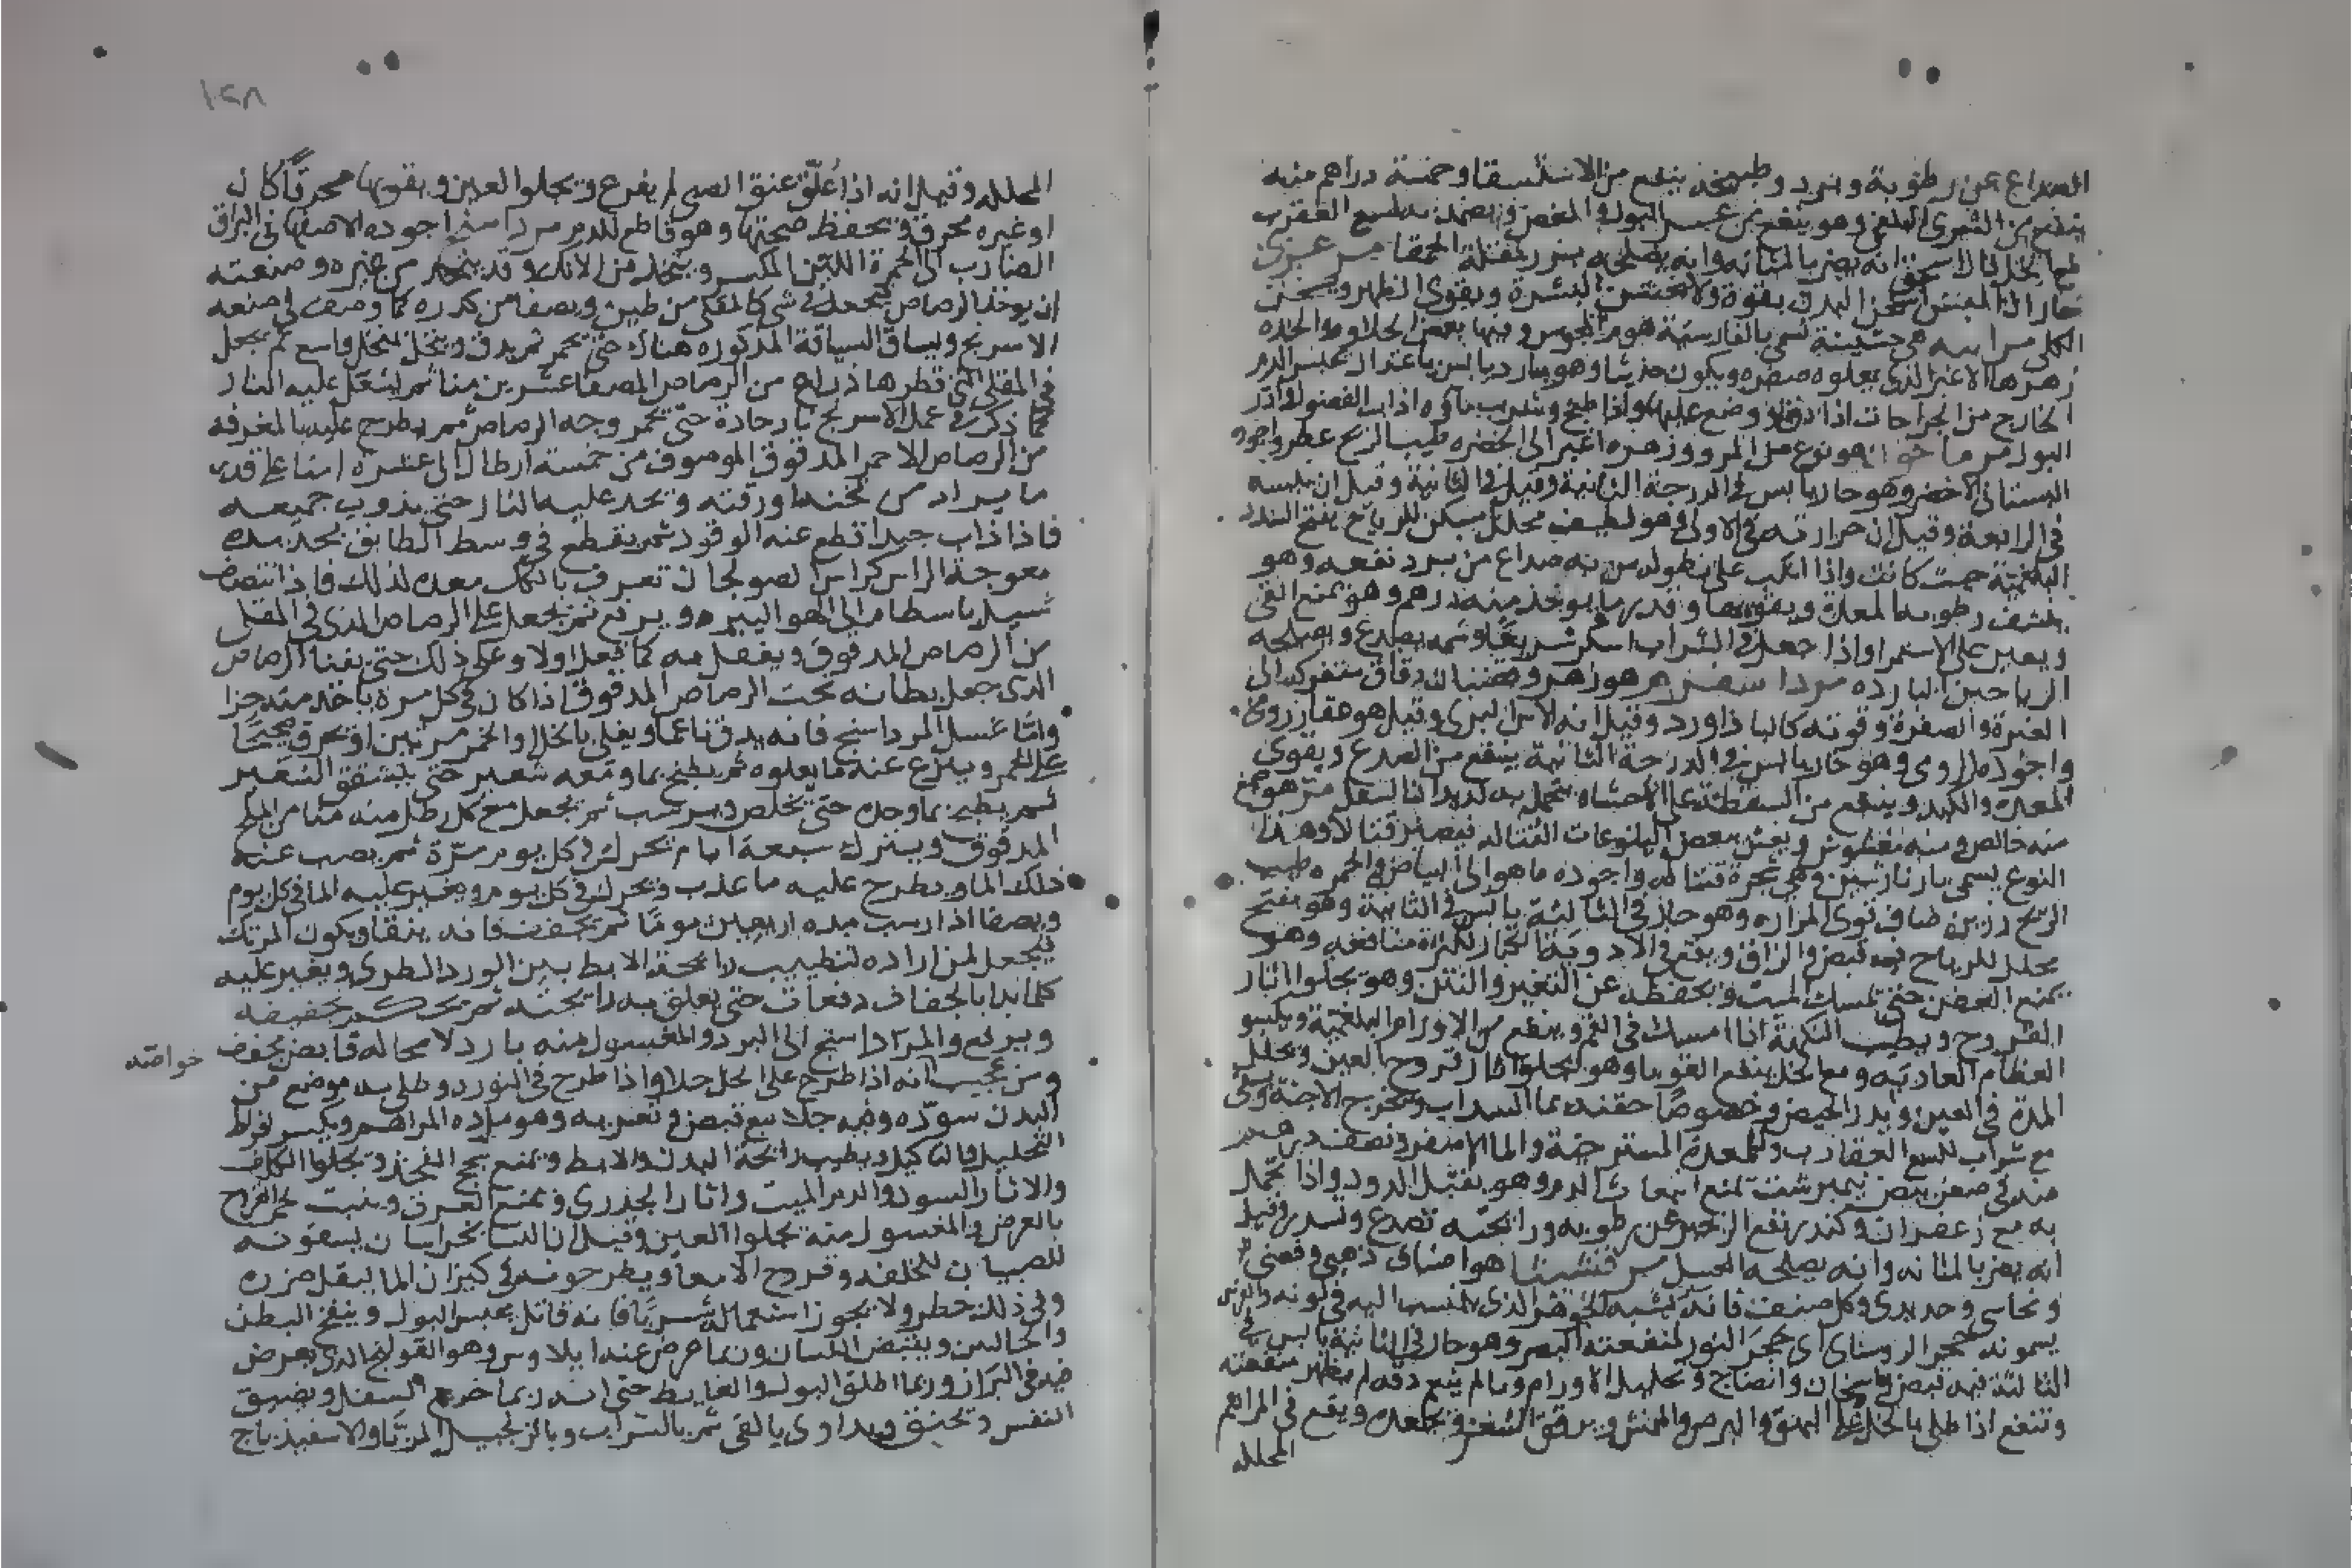 الصداع عن رطوبة وبرد وطبيخه ينفع من الاستسقا وخمسة دراهم منه
ينفع من الشرى البلغمي وهو ينفع من عسر البول والمغص ويضمد به لسع العقرب
مع الخل قال اسحق انه يضر بالمثانه وانه يصلحه بزر لبقلة الحمقا
حار اذا اسخن البدن بقوة ولا يخشن البشرة ويقوى الظهر ويسخن
الكلى هي حشيشة تسمى بالفارسية
زهرها الاغبر الذى يعلوه صفره ويكون حديثا وهو بارد يابس باعتدال يحبس الدم
الخارج من الجراحات اذا دق ووضع عليها واذا طبخ وشرب ماوه اذاب الفضول وادر
البول مرماخوز هو نوع من المرو وزهره اغبر الى الخضره طيب الريح عطر واجوده
البستانى الاخضر وهو حار يابس في الدرجة الثانية وقيل في الثالثة وقيل ان يبسه
في الرابعة وقيل ان حرارته في الاولى وهو لطيف محلل مسكن للرياح يفتح السدد
البلغمية حيث كانت واذا انكب على نطوله من به صداع من برد نفعه وهو
ينشف رطوبة المعدة ويقويها وقدر ما يوخذ منه درهم وهو يمنع القى
ويعين على الاستمرا واذا جعل في الشراب اسكر سريعا وشمه يصدع ويصلحه
الرياحين البارده هو زهر وقضبان دقاق متفركه الى
الغبرة والصفرة وقوته كالباذاورد وقيل انه الاس البرى وقيل هو عقار رومى
واجوده الرومى وهو حار يابس في الدرجة الثانية ينفع من الصدع ويقوى
المعده والكبد وينفع من السقطة على الاحشاء
منه خالص ومنه مغشوش ويغش ببعض اليتوعات القتاله فيصير قتالا وهذا
النوع يسمى وهي شجرة قتاله واجوده ما هو الى البياض والحمره طيب
الريح رزين صاف قوى المراره وهو حار في الثالثة يابس في الثانية وهو مفتح
محلل للرياح فيه قبض والزاق ويقع في الادوية الكبار لكثرة منافعه وهو
يمنع العفن حتى يمسك الميت ويحفظه عن التغير والنتن وهو يجلو اثار
القروح ويطيب النكهة اذا امسك في الفم وينفع من الاورام البلغمية ويكسو
العظام العاريه ومع الخل ينفع القوبا وهو يجلو اثار قروح العين ويحلل
المدة في العين ويدر الحيض وخصوصا حقنه بما السداب ويخرج الاجنة
مع شراب للسع العقارب وللمعدة المسترخية والما الاصفر ونصف درهم
منه في صفرة بيض نيمبرشت يمنع انبعاث الدم وهو يقتل الدود واذا تحمل
به مع زعفران وكندر نفع الزحير عن رطوبه ورائحته تصدع وتسدر وقيل
انه يضر بالمثانه وانه يصلحه العسل مرقشيثا هو اصناف ذهبى وفضى
ونحاسى وحديدى وكل صنف فانه يشبه الجوهر الذى ينسب اليه في لونه والفرس
يسمونه حجر الروشناى اى حجر النور لمنفعته البصر وهو حار في الثانية يابس في
الثالثة فيه قبض واسخان وانضاج وتحليل الاورام وما لم ينعم دقه لم يظهر منفعته
وينفع اذا طلى بالخل على البهق والبرص والنمش ويرقق الشعر ويجعده ويقع في المراهم
المحلله
١٢٨
المحلله وقيل انه اذا علق عنق الصبى لم يفزع ويجلو العين ويقويها محرقا كان
او غيره محرق ويحفظ صحتها وهو قاطع للدم مرداسنج اجوده الاصفهانى البراق
الضارب الى الحمرة اللين المكسر ويتخذ من الانك وقد يتخذ من غيره وصنعته
ان يوخذ الرصاص فيجعل في شى كالمقلى من طين ويصفا من كدره كما وصف في صنعه
الاسرنج ويساق السياقة المذكوره هناك حتى يحمر ثم يدق وينخل بمنخل واسع ثم يجعل
في المقلى التي قطرها ذراع من الرصاص المصفا عشرين منا ثم اشعل عليه النار
كما ذكر في عمل الاسرنج نار حادة حتى يحمر وجه الرصاص ثم يطرح عليه بالمغرفه
من الرصاص الاحمر المدقوق الموصوف من خمسة ارطال الى عشرة امنا على قدر
ما يراد من ثخنه ورقته ويحد عليه النار حتى يذوب جميعه
فاذا ذاب جيدا قطع عنه الوقود ثم يقطع في وسط الطابق بحديده
معوجة الراس كراس الصولجان تعرف معده لذلك فاذا انتصف
شيل باسطام الى الهوا ليبرد ويرفع ثم يجعل على الرصاص الذى في المقلى
من الرصاص المدقوق ويفعل به كما فعل اولا وعلى ذلك حتى يفنا الرصاص
الذى جعل بطانه تحت الرصاص المدقوق اذا كان في كل مرة ياخذ منه جزا
واما غسل المرداسنج فانه يدق ناعما ويغلى بالخل والخمر مرتين او يحرق
على الجمر وينزع عنه ما يعلوه ثم يطبخ بما ومعه شعير حتى يتشقق الشعير
ثم يطبخ بما وحده حتى يخلص ويرسب ثم يجعل مع كل رطل منه منا من الملح
المدقوق ويترك سبعة ايام يحرك في كل يوم مرة ثم يصب عنه
ذلك الما ويطرح عليه ما عذب ويحرك في كل يوم ويغير عليه الما في كل يوم
ويصفا اذا رسب مده اربعين يوما ثم يجفف فانه ينقا ويكون المرتك
يجعل لمن اراده لتطييب رائحة الابط بين الورد الطرى ويغير عليه
كلما بدا بالجفاف دفعات حتى يعلق به رائحته ثم تجفيفه
ويرفع والمرداسنج الى البرد والمغسول منه بارد لا محاله قابض يجفف
خواصه
ومن عجيب انه اذا طرح على الخل حلا واذا طرح في النوره وطلى به موضع من
البدن سوده وفيه جلا مع قبض وتغريه وهو ماده المراهم ويكسر افراط
التحليل والتاكيل ويطيب رائحة البدن والابط ويمنع سحج الفخذ ويجلو الكلف
والاثار السود والدم الميت واثار الجدرى ويمنع العرق وينبت لحم القروح
بالعرض والمغسول منه يجلو العين وقيل ان النسا بخراسان يسقونه
للصبيان للخلفه وقروح الامعا ويطرحونه في كيزان الما ليقل ضرره
وفي ذلك خطر ولا يجوز استعماله شربا فانه قاتل يحبس البول وينفخ البطن
والحالبين ويقبض اللسان وربما عرض عنه ايلاوس وهو القولنج الذى يعرض
فيه قى البراز وربما اطلق البول والغايط حتى انه ربما خرج السفل ويضيق
النفس ويخنق ويداوى بالقى ثم بالشراب وبالزنجبيل المربا والاسفيذباج